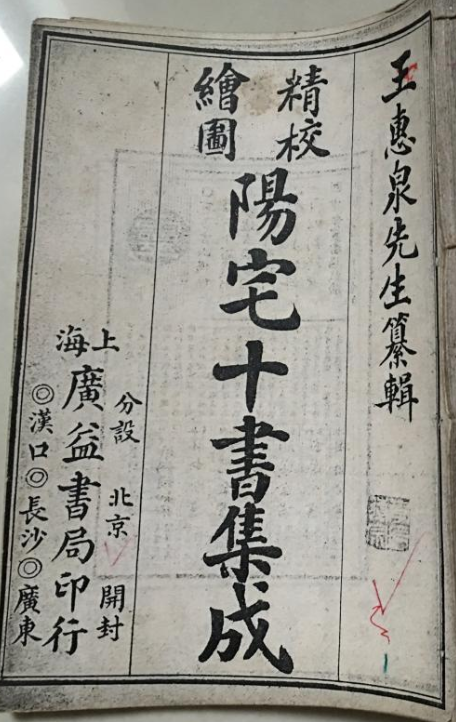 王惠泉先生纂輯
精校
繪圖
陽宅十書集成
分設 北京 開封
上海
廣益書局印行
◎漢口◎長沙◎廣東